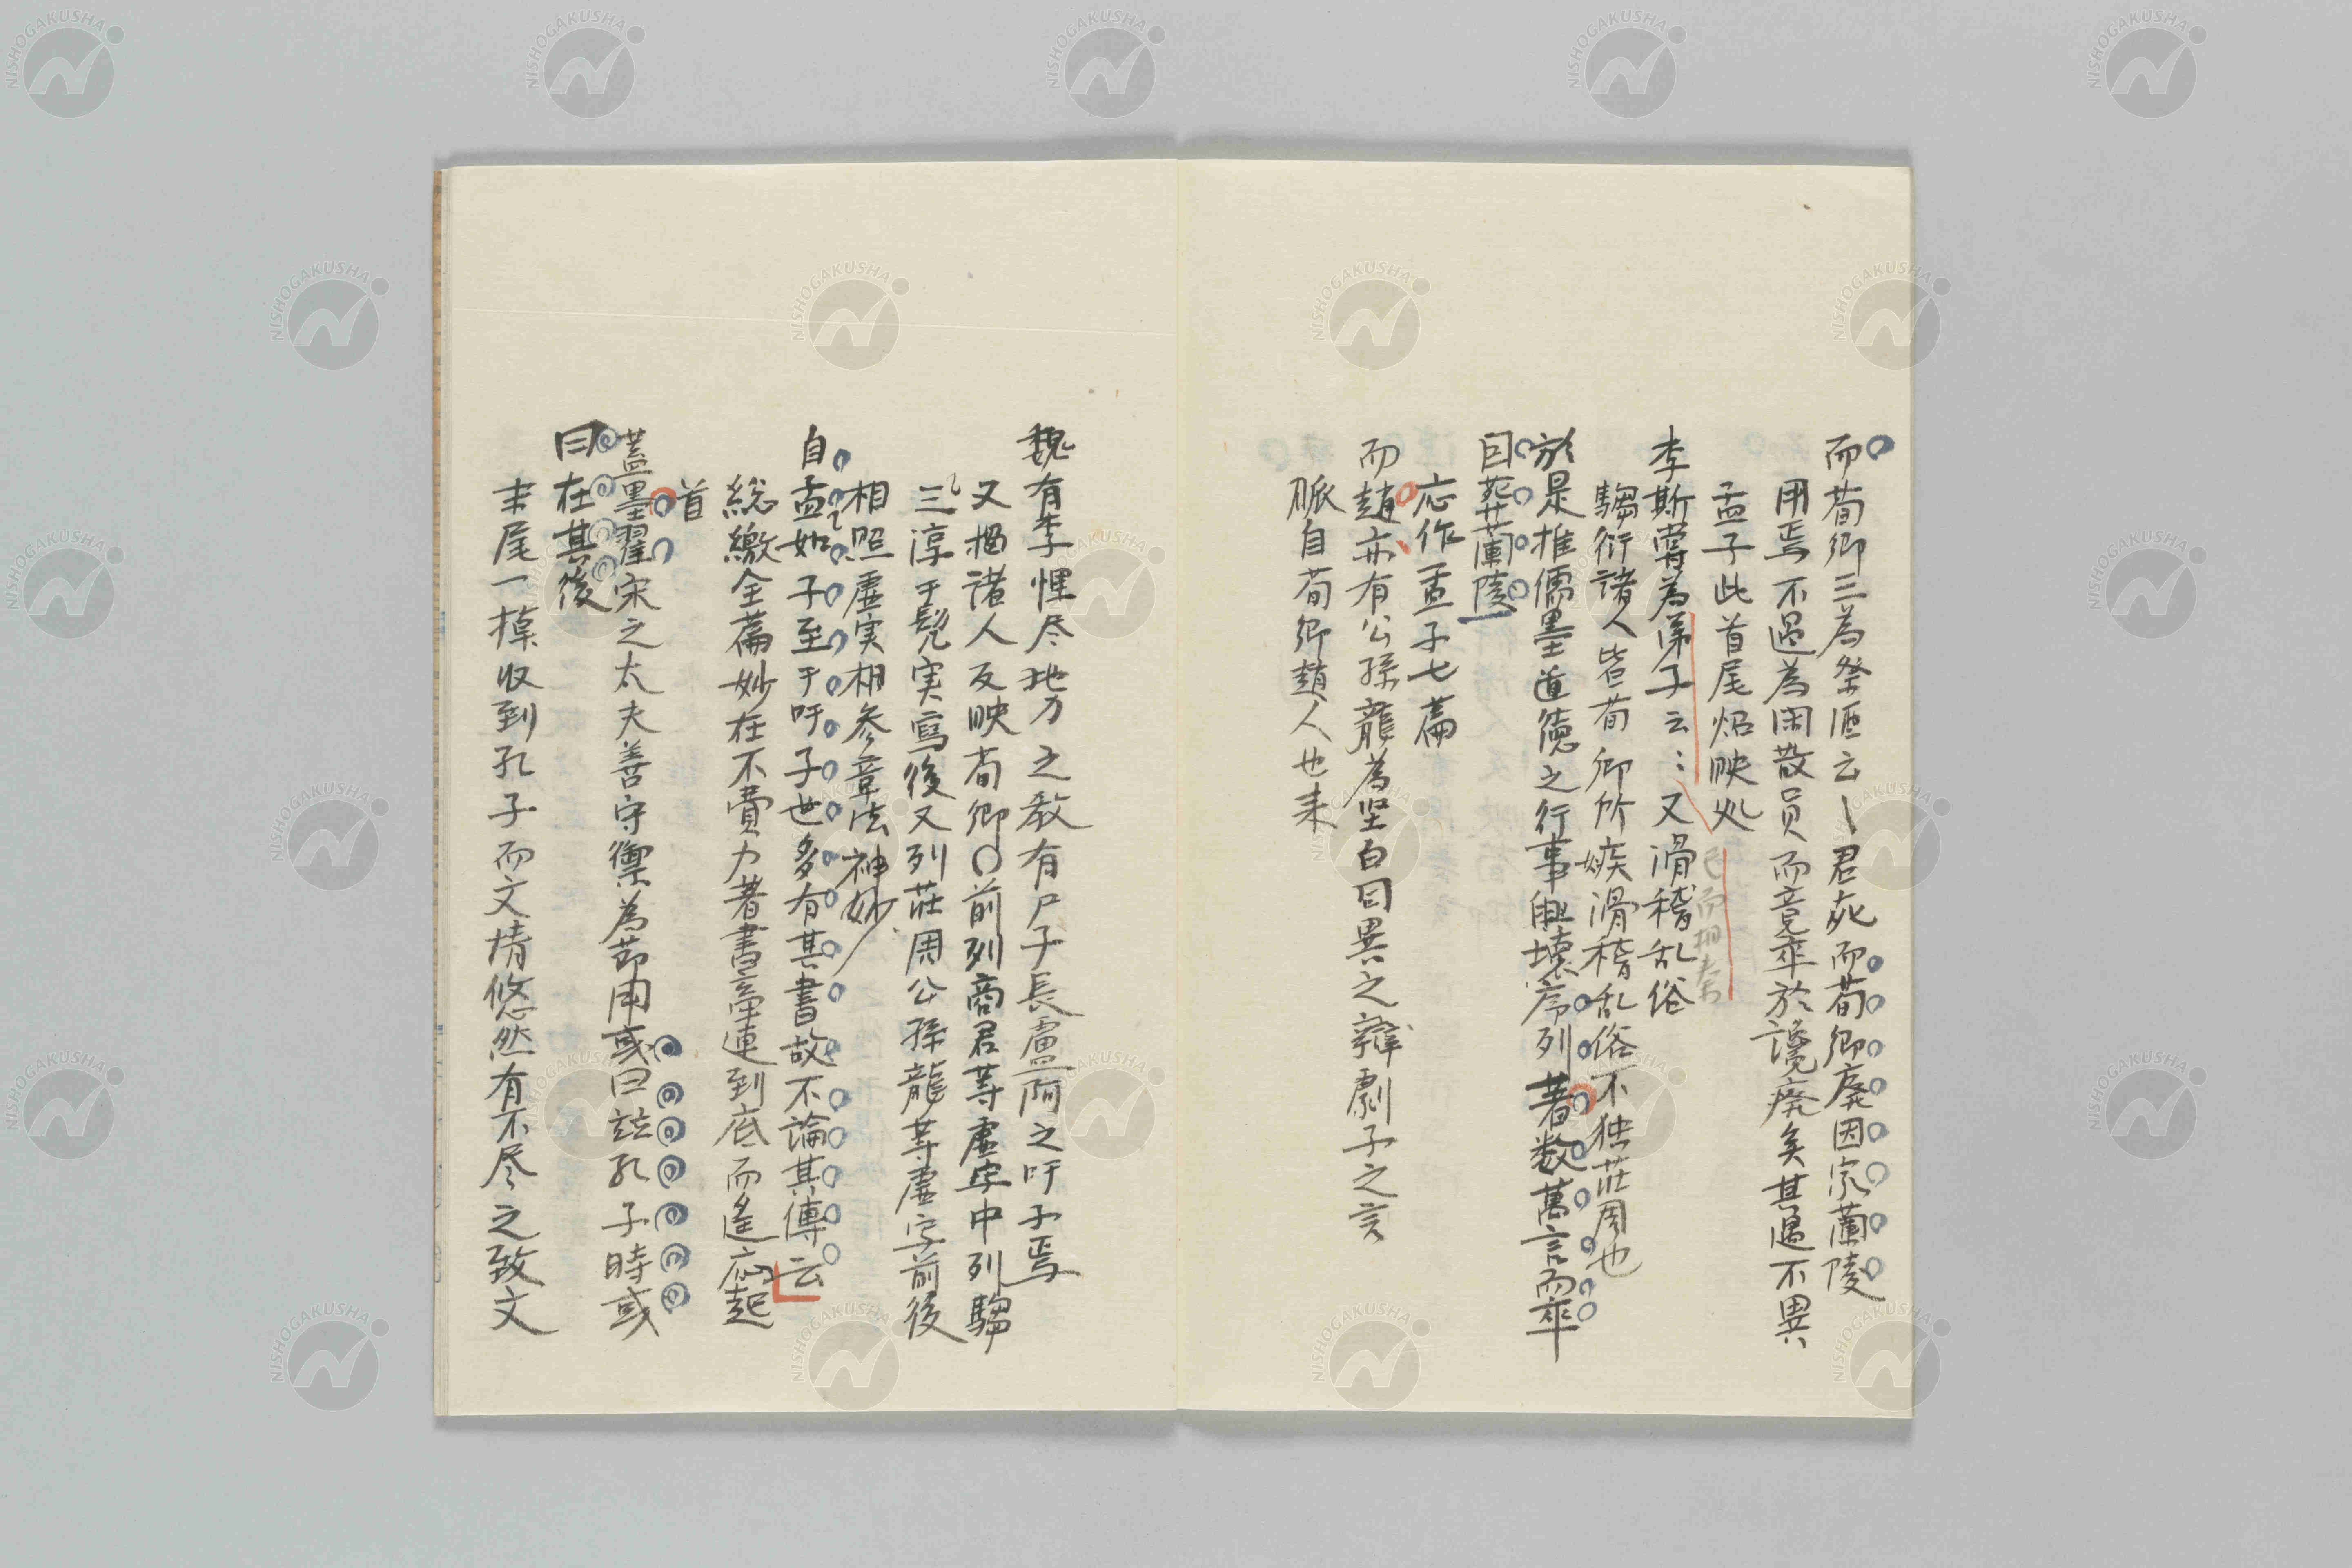 而荀卿三為祭酒云〳君死而荀卿廃因家蘭陵
用焉不過為閑散員而竟卒於讒廃矣其遇不異
孟子此首尾炤映処
李斯嘗為弟子云〻又滑稽乱俗
已而相秦
騶衍諸人皆荀卿所嫉滑稽乱俗不独荘周也
於是推儒墨道徳之行事興壊序列著数萬言而卒
因葬蘭陵
応作孟子七篇
而趙亦有公孫龍為坚白同異之辯劇子之言
脈自荀卿趙人也来
魏有李悝尽地力之教有尸子長盧阿之吁子焉
又掲諸人反映荀卿〇前列商君等虚字中列騶
三淳于髡実寫後又列荘周公孫龍等虚字前後
相照虚実相参章法神妙
自孟如子至于吁子世多有其書故不論其傳云
総繳全篇妙在不費力著書字連到底而遙応起
首
蓋墨翟宋之太夫善守禦為節用或曰竝孔子時或
曰在其後
末尾一掉収到孔子而文情悠然有不尽之致文
NISHOGAKUSHA